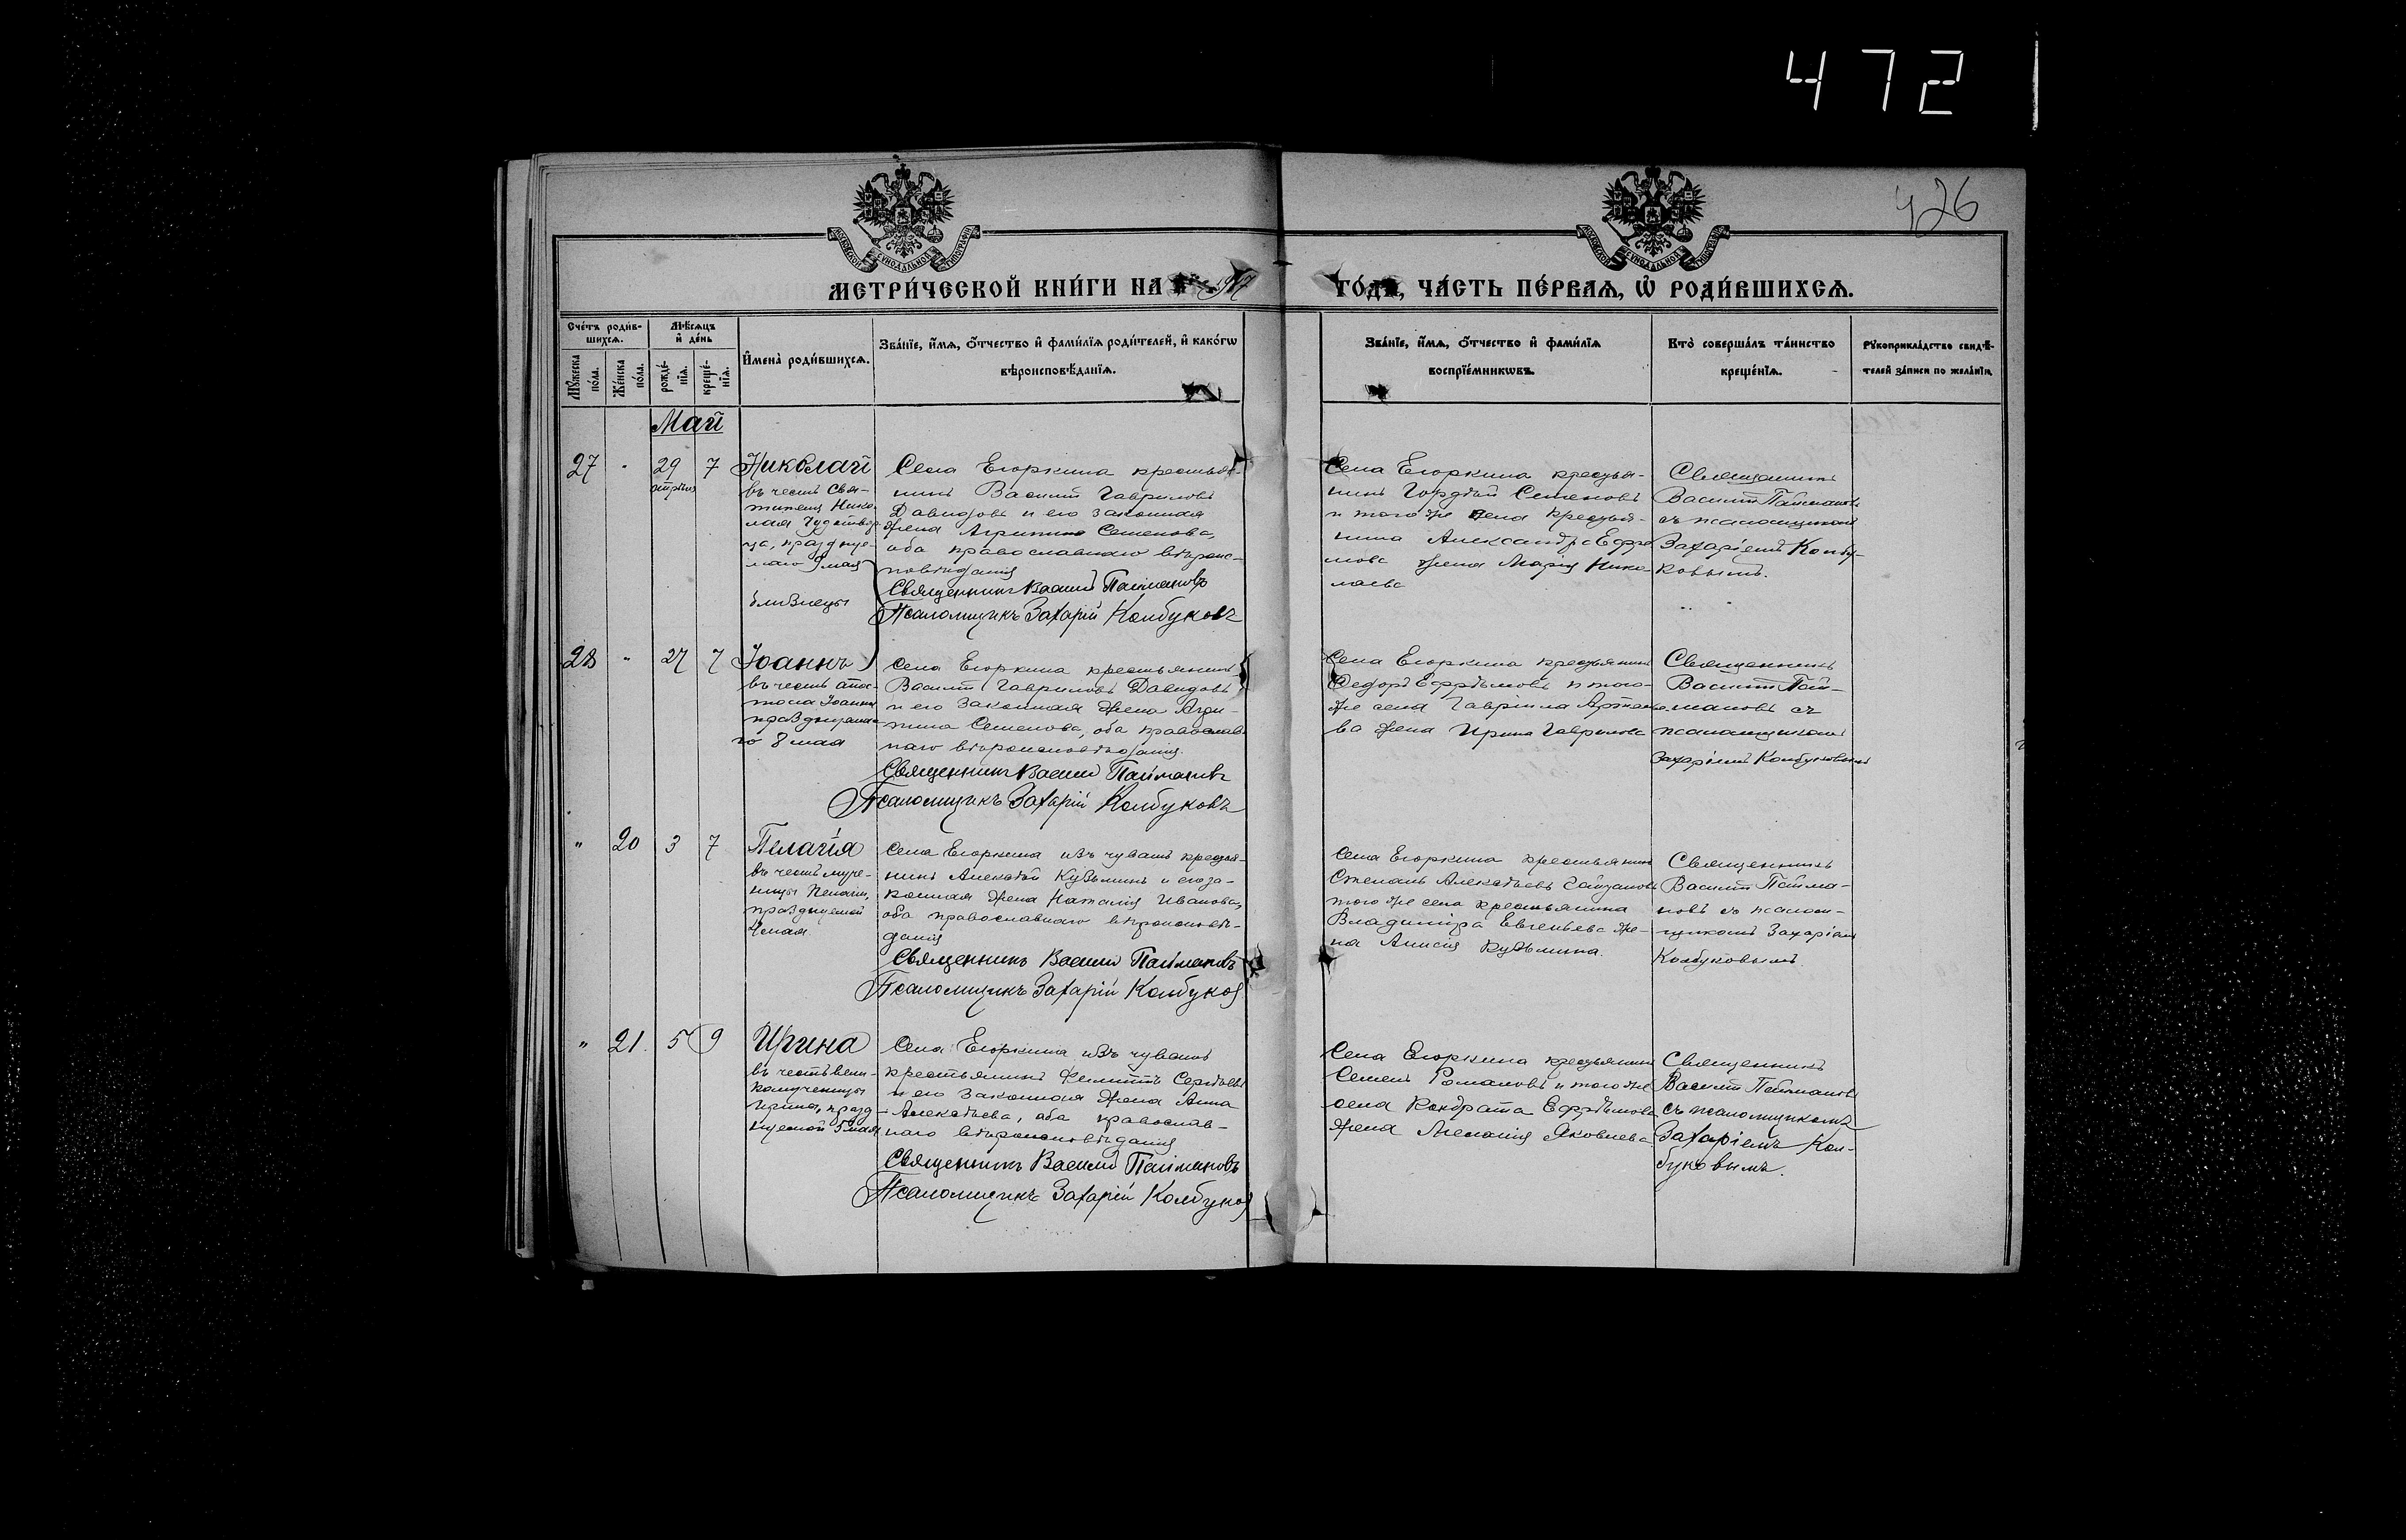 472
426
МОСКОВСКОЙ СѴНОДАЛЬНОЙ ТИПОГРАФІИ
МОСКОВСКОЙ СѴНОДАЛЬНОЙ ТИПОГРАФІИ
МЕТРИ́ЧЕСКОЙ КНИ́ГИ НА 1917 ГО́ДЪ, ЧА́СТЬ ПЕ́РВАѦ, Ѡ҆ РОДИ́ВШИХСѦ.
Сче́тъ роди́в-
шихсѧ.
Мꙋ́жеска по́ла.
Же́нска по́ла.
Мѣ́сѧцъ
и҆ де́нь
рожде́-
нїѧ.
креще́-
нїѧ.
И҆мена̀ роди́вшихсѧ.
Зва́нїе, и҆́мѧ, ѻ҆́тчество и҆ фами́лїѧ роди́телей, и҆ како́гѡ
вѣроисповѣ́данїѧ.
Зва́нїе, и҆́мѧ, ѻ҆́тчество и҆ фами́лїѧ
воспрїе́мникѡвъ.
Кто̀ соверша́лъ та́инство
креще́нїѧ.
Рꙋкоприкла́дство свидѣ́-
телей за́писи по жела́нїю.
Май
27 " 29 7
апрѣля
Николай
въ честь Свя-
тителя Нико-
лая Чудотвор-
ца, празднуе-
маго 9 мая
близнецы
Села Егоркина крестья-
нинъ Василій Гавриловъ
Давидовъ и его законная
жена Агрипина Семенова,
оба православнаго вѣроис-
повѣданія
Священникъ Василій Паймановъ
Псаломщикъ Захарій Колбуковъ
Села Егоркина крестья-
нинъ Гордѣй Семеновъ
и того же села крестья-
нина Александра Ефре
мова жена Марія Нико-
лаева
Священникъ
Василій Паймановъ
съ псаломщикомъ
Захаріемъ Колбу-
ковымъ.
28 " 27 7
Іоаннъ
въ честь апос-
тола Іоанна
празднуемаго
8 мая
Села Егоркина крестьянинъ
Василій Гавриловъ Давидовъ
и его законная жена Агри-
пина Семенова, оба православ
наго вѣроисповѣданія.
Священникъ Василій Паймановъ
Псаломщикъ Захарій Колбуковъ
Села Егоркина крестьянинъ
Ѳедоръ Ефремовъ и того-
же села Гавріила
жена Ирина Гаврилова
Священникъ
Василій Пай-
мановъ съ
псаломщикомъ
Захаріемъ Колбуковымъ
" 20 3 7
Пелагія
въ честь муче-
ницы Пелагіи,
празднуемой
4 мая.
Села Егоркина изъ чувашъ крестья-
нинъ Алексѣй Кузьминъ и его за-
конная жена Наталія Иванова,
оба православнаго вѣроисповѣ-
данія
Священникъ Василій Паймановъ
Псаломщикъ Захарій Колбуковъ
Села Егоркина крестьянинъ
Степанъ Алексѣевъ
того же села крестьянина
Владиміра Евгеньева же-
на Анисія Кузьмина.
Священникъ
Василій Пайма-
новъ съ псалом-
щикомъ Захаріемъ
Колбуковымъ.
" 21. 5 9
Ирина
въ честь вели-
комученицы
Ирины, празд-
нуемой 5 мая
Села Егоркина изъ чувашъ
крестьянинъ Филиппъ Сергѣевъ
и его законная жена Анна
Алексѣева, оба православ-
наго вѣроисповѣданія
Священникъ Василій Паймановъ
Псаломщикъ Захарій Колбуковъ
Села Егоркина крестьянинъ
Семенъ Романовъ и того же
села Кондрата Ефремова
жена Мелания Яковлева
Священникъ
Василій Паймановъ
съ псаломщикомъ
Захаріемъ Кол-
буковымъ.